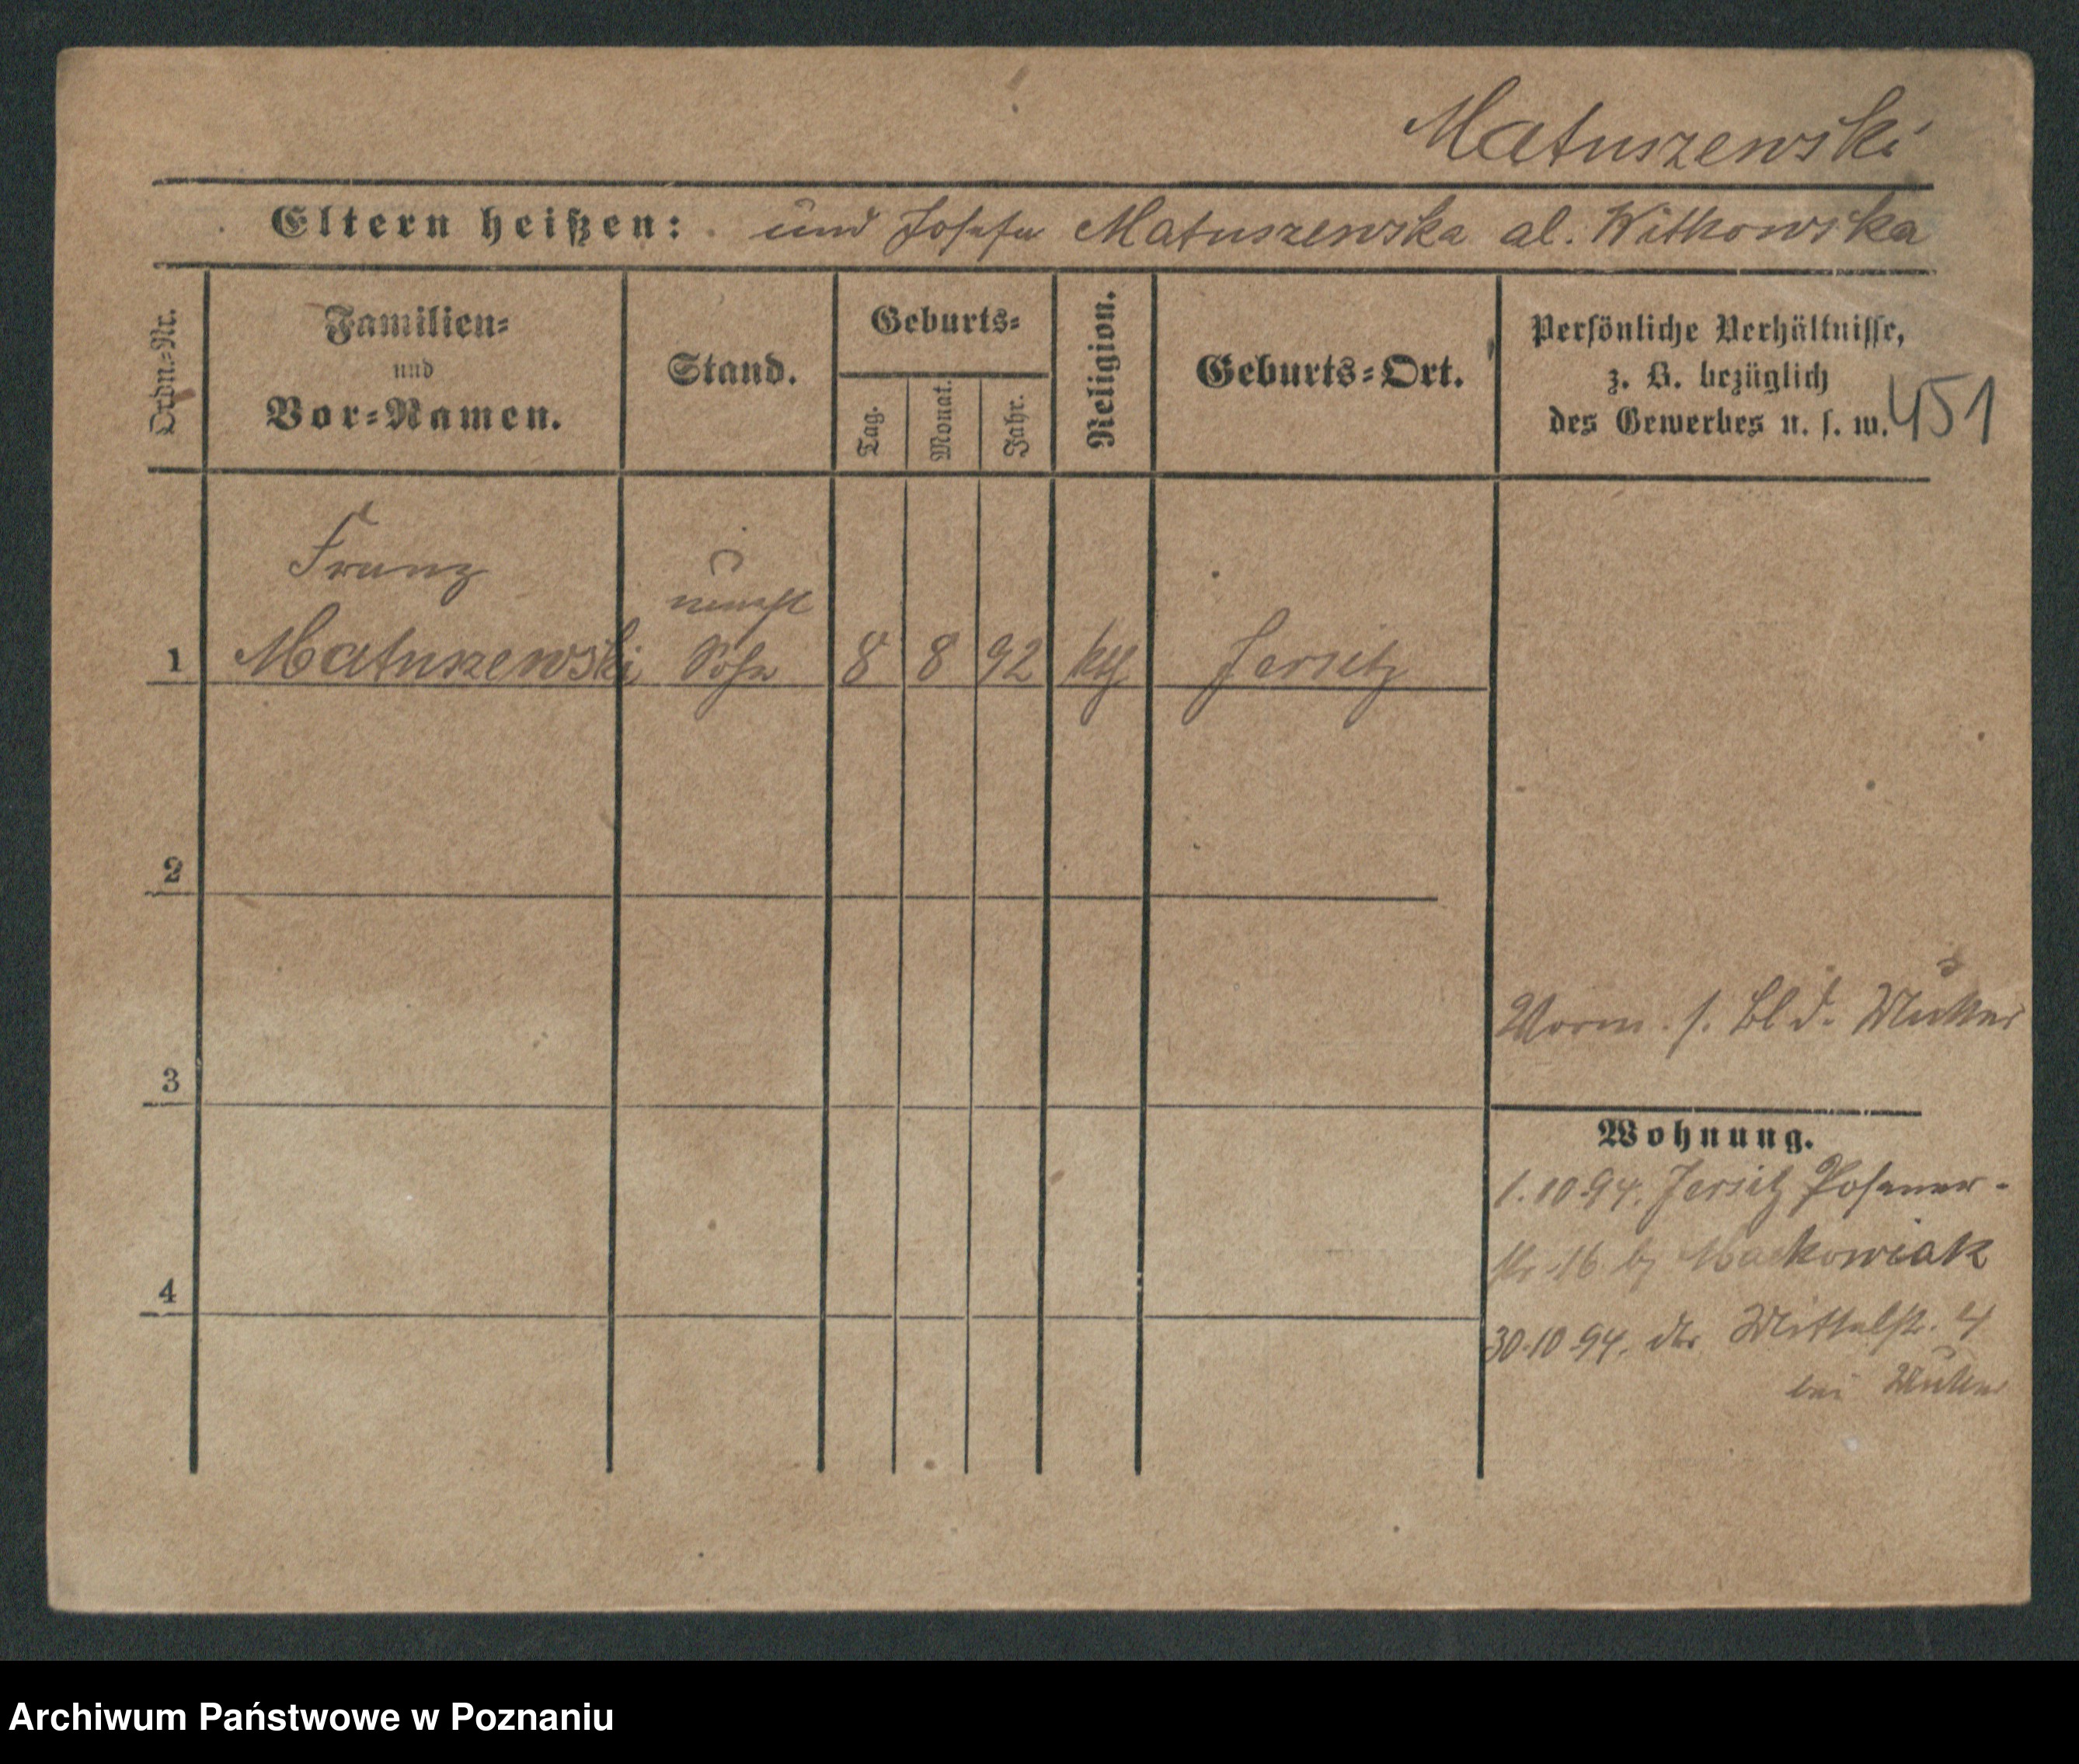 Matuszewski
Eltern heißen: und Josefa Matuszewska al. Witkowska
Ordn.-Nr.
Familien-
und
Vor-Namen.
Stand.
Geburts-
Tag.
Monat.
Jahr.
Religion.
Geburts-Ort.
Persönliche Verhältnisse,
z. B. bezüglich
des Gewerbes u. s. w.
451
Franz
unehl
1 Matuszewski Sohn 8 8 92 kth Jersitz
2
3
4
Vorm. s. Bl d. Mutter
Wohnung.
1.10.94. Jersitz Posener-
str 16 bj Maćkowiak
30.10.94. Mittelstr. 4
bei Mutter
Archiwum Państwowe w Poznaniu